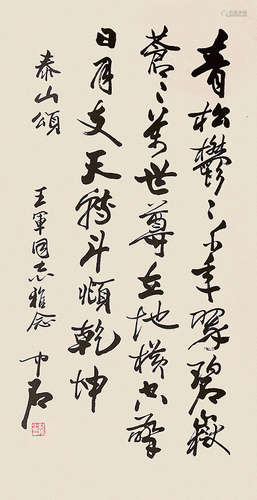 青松鬱〻千年翠碧嶽
蒼〻萬世尊立地橫空擎
日月支天轉斗順乾坤
泰山頌
王軍同志雅念
中石